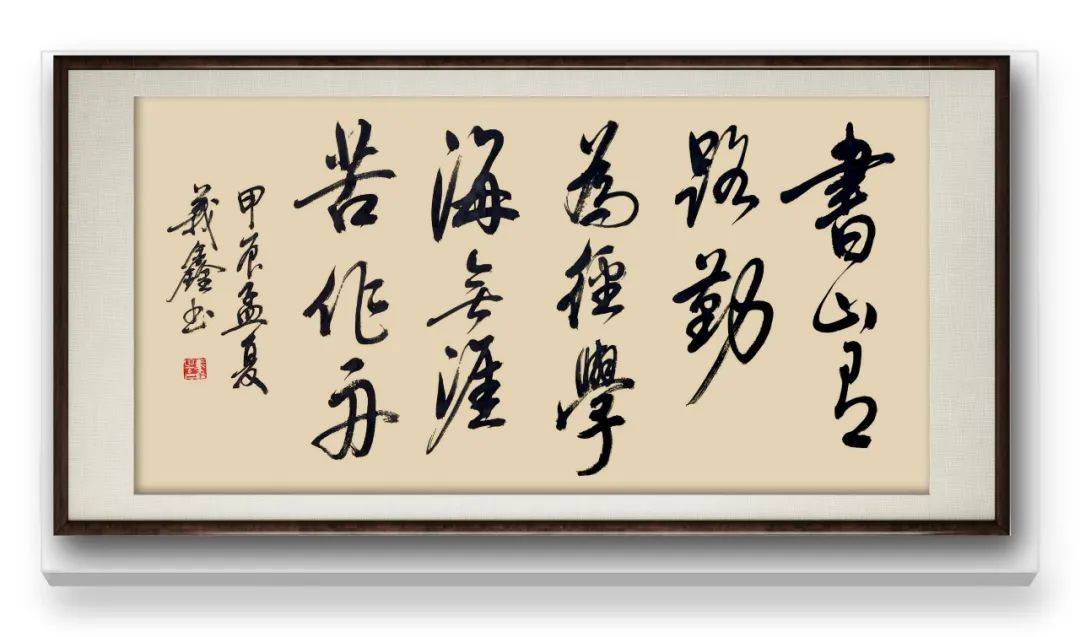 書山有
路勤
為徑學
海無涯
苦作舟
甲辰孟夏
義鑫书